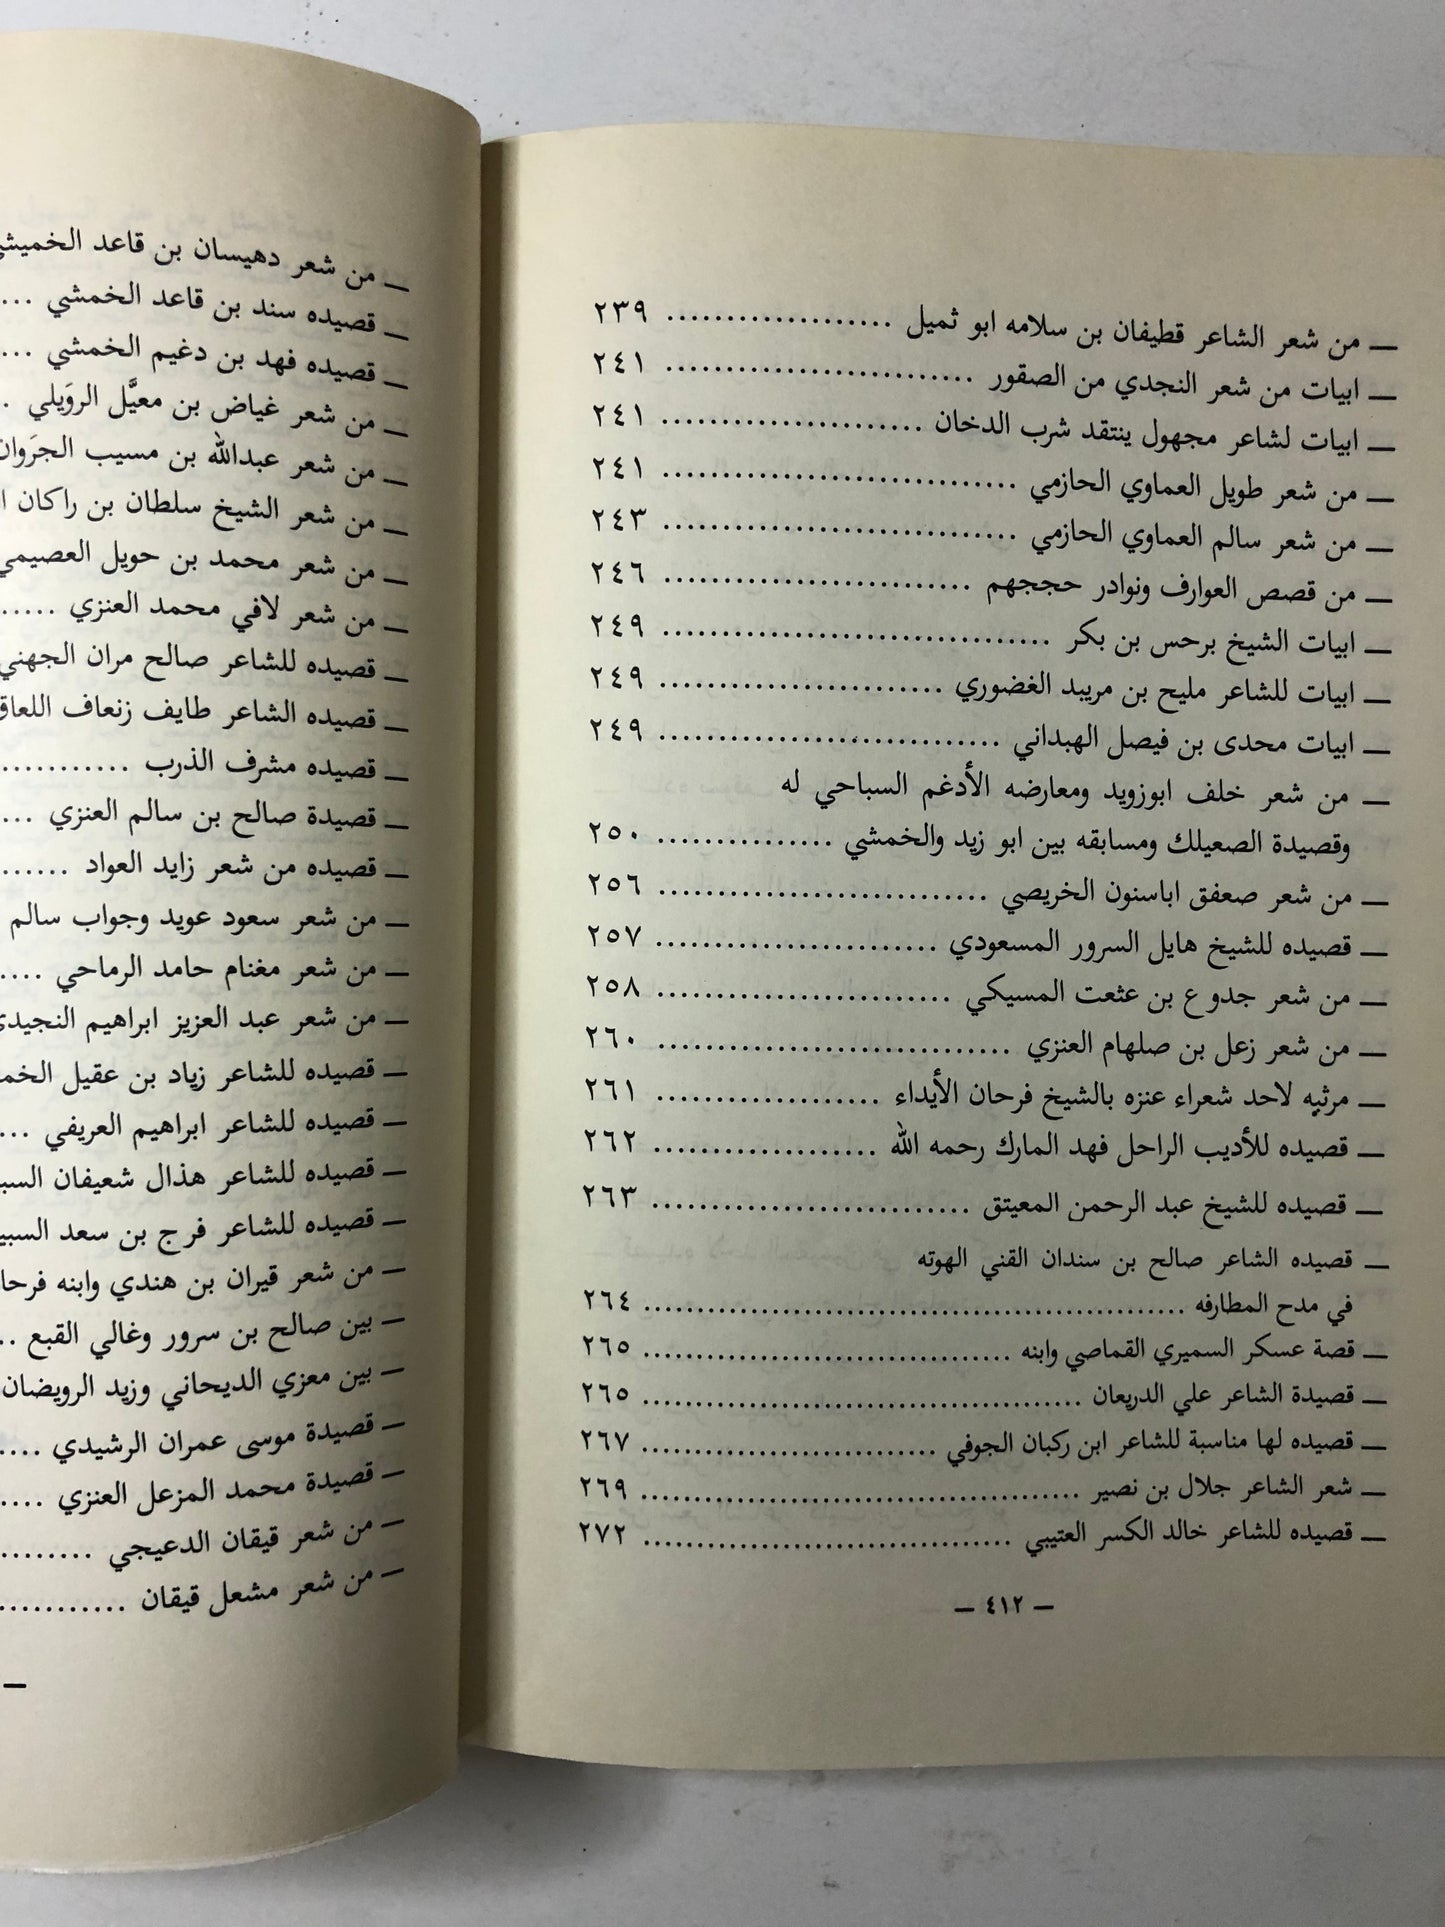 — من شعر الشاعر قطيفان بن سلامه ابو ثميل ................... ٢٣٩
— ابيات من شعر النجدي من الصقور .......................... ٢٤١
— ابيات لشاعر مجهول ينتقد شرب الدخان ...................... ٢٤١
— من شعر طويل العماوي الحازمي .............................. ٢٤١
— من شعر سالم العماوي الحازمي .............................. ٢٤٣
— من قصص العوارف ونوادر حججهم .......................... ٢٤٦
— ابيات الشيخ برحس بن بكر ................................. ٢٤٩
— ابيات للشاعر مليح بن مريبد الغضوري ........................ ٢٤٩
— ابيات محدى بن فيصل الهبداني ............................. ٢٤٩
— من شعر خلف ابوزويد ومعارضه الأدغم السباحي له
وقصيدة الصعيلك ومسابقه بين ابو زيد والخمشي ............... ٢٥٠
— من شعر صعفق اباسنون الخريصي ............................ ٢٥٦
— قصيده للشيخ هايل السرور المسعودي ........................ ٢٥٧
— من شعر جدوع بن عثعت المسيكي ......................... ٢٥٨
— من شعر زعل بن صلهام العنزي .............................. ٢٦٠
— مرثيه لاحد شعراء عنزه بالشيخ فرحان الأيداء ................... ٢٦١
— قصيده للأديب الراحل فهد المارك رحمه الله ................... ٢٦٢
— قصيده للشيخ عبد الرحمن المعيتق ........................... ٢٦٣
— قصيده الشاعر صالح بن سندان القني الهوته
في مدح المطارفه .................................................. ٢٦٤
— قصة عسكر السميري القماصي وابنه ................................. ٢٦٥
— قصيدة الشاعر علي الدريعان ........................................ ٢٦٥
— قصيده لها مناسبة للشاعر ابن ركبان الجوفي ........................... ٢٦٧
— شعر الشاعر جلال بن نصير ........................................ ٢٦٩
— قصيده للشاعر خالد الكسر العتيبي .................................. ٢٧٢
— ٤١٢ —
— من شعر دهيسان بن قاعد الخميشي
— قصيده سند بن قاعد الخمشي ...
— قصيده فهد بن دغيم الخمشي ...
— من شعر غياض بن معيَّل الروَيلي .
— من شعر عبدالله بن مسيب
— من شعر الشيخ سلطان بن راكان
— من شعر محمد بن حويل العصيمي
— من شعر لافي محمد العنزي .....
— قصيده للشاعر صالح مران الجهني
— قصيده الشاعر طايف زنعاف
— قصيده مشرف الذرب ...........
— قصيدة صالح بن سالم العنزي ...
— قصيده من شعر زايد العواد .......
— من شعر سعود عويد وجواب سالم
— من شعر مغنام حامد الرماحي ....
— من شعر عبد العزيز ابراهيم النجيدي
— قصيده للشاعر زياد بن عقيل
— قصيده للشاعر ابراهيم العريفي ...
— قصيده للشاعر هذال شعيفان
— قصيده للشاعر فرج بن سعد
— من شعر قيران بن هندي وابنه
— بين صالح بن سرور وغالي القبع ..
— بين معزي الديحاني وزيد الرويضان
— قصيدة موسى عمران الرشيدي ....
— قصيدة محمد المزعل العنزي ....
— من شعر قيقان الدعيجي ........
— من شعر مشعل قيقان ...........
—